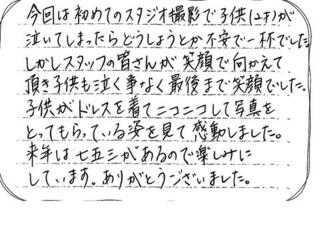 今回は初めてのスタジオ撮影で子供(2才)が
泣いてしまったらどうしようとか不安で一杯でした
しかしスタッフの皆さんが笑顔で向かえて
頂き子供も泣く事なく最後まで笑顔でした。
子供がドレスを着てニコニコして写真を
とってもらっている姿を見て感動しました。
来年は七五三があるので楽しみに
しています。ありがとうございました。